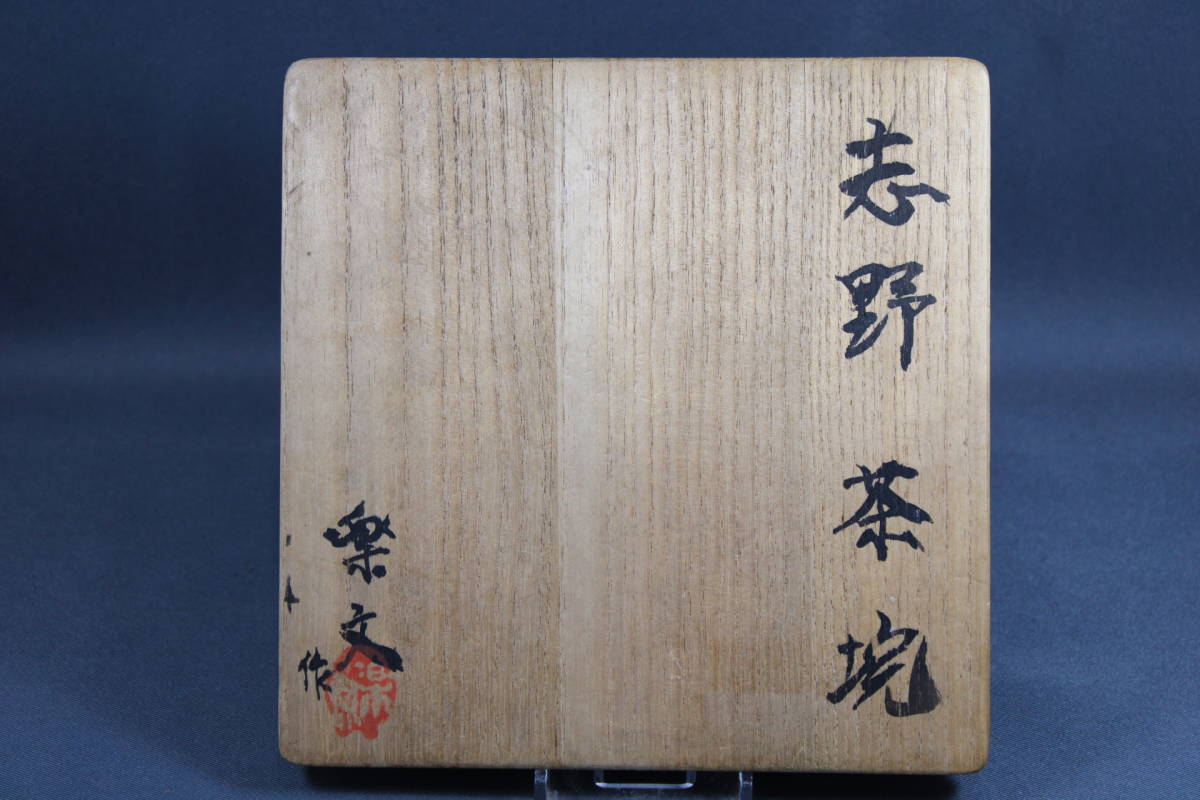 志野 茶埦
樂文
作